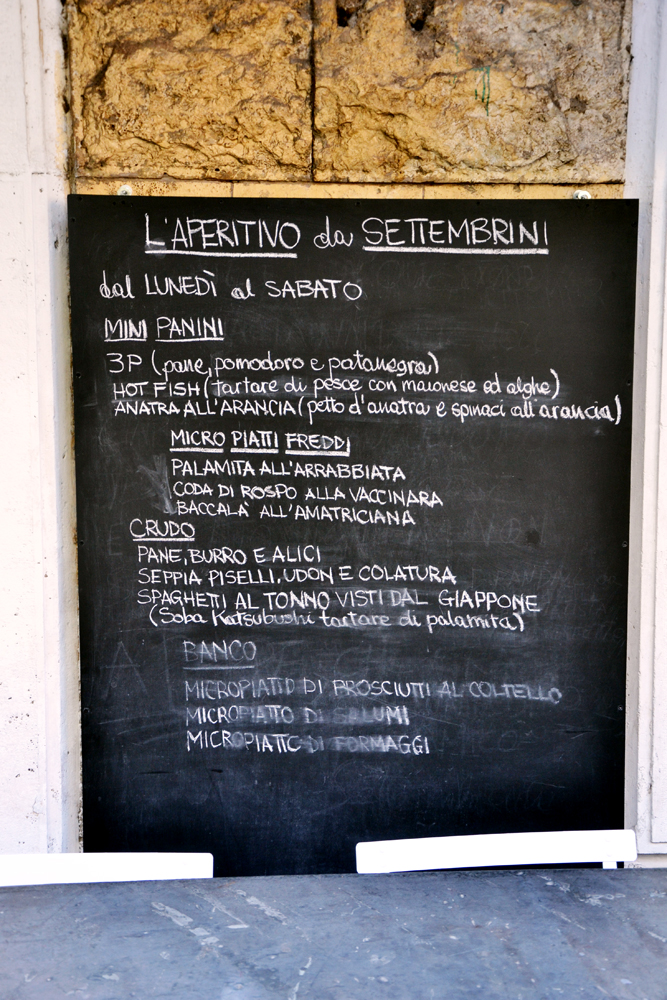 L'APERITIVO da SETTEMBRINI
dal LUNEDÌ al SABATO
MINI PANINI
3P (pane, pomodoro e patanegra)
HOT FISH (tartare di pesce con maionese ed alghe)
ANATRA ALL'ARANCIA (petto d'anatra e spinaci all'arancia)
MICRO PIATTI FREDDI
PALAMITA ALL'ARRABBIATA
CODA DI ROSPO ALLA VACCINARA
BACCALÀ ALL'AMATRICIANA
CRUDO
PANE, BURRO E ALICI
SEPPIA PISELLI, UDON E COLATURA
SPAGHETTI AL TONNO VISTI DAL GIAPPONE
(Soba Katsubushi tartare di palamita)
BANCO
MICROPIATTO DI PROSCIUTTI AL COLTELLO
MICROPIATTO DI SALUMI
MICROPIATTO DI FORMAGGI